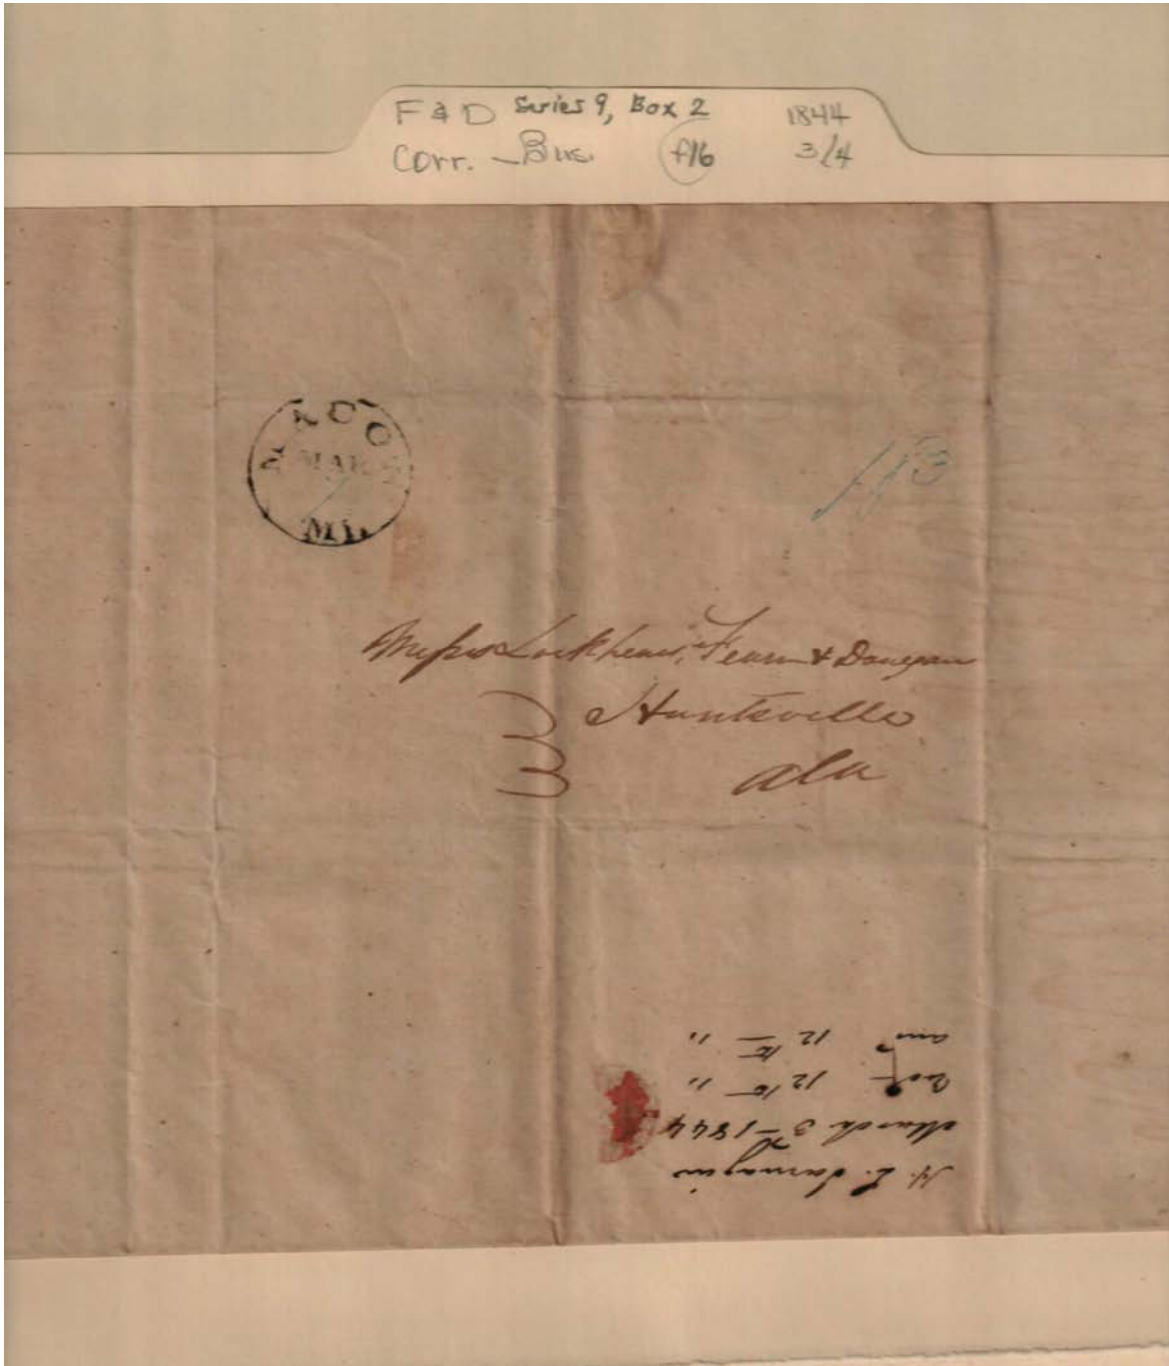 F & D Series 9, Box 2 1844
Corr. - Bus. f16 3/4
MACON
MAR
MI.
Messrs Lockheart, Fearn & Donegan
Huntsville
Ala
March 5th 1844
Recd 12th "
ansd 12th "